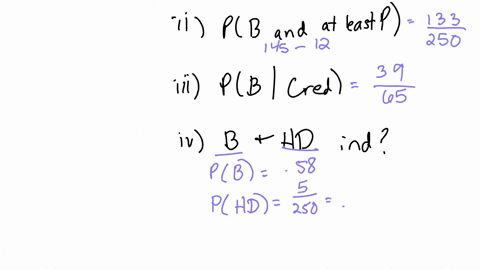 ii) P(B and at least P) = 133/250
145 - 12
iii) P(B | Cred) = 39/65
iv) B + HD ind?
P(B) = .58
P(HD) = 5/250 = .